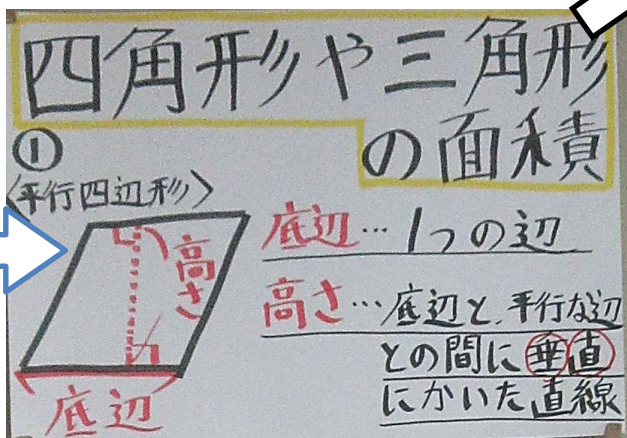 四角形や三角形
の面積
①
〈平行四辺形〉
高さ
底辺
底辺…1つの辺
高さ…底辺と、平行な辺
との間に垂直
にかいた直線